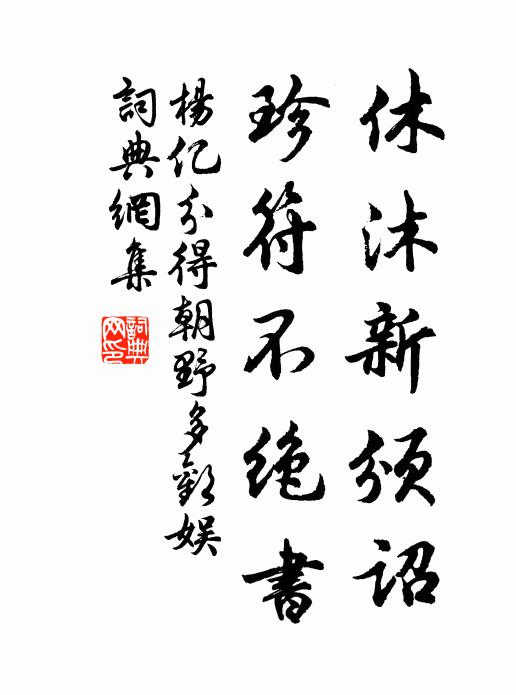 休沐新頒詔
珍符不絕書
楊億分得朝野多歡娛
詞典網集
詞典網印